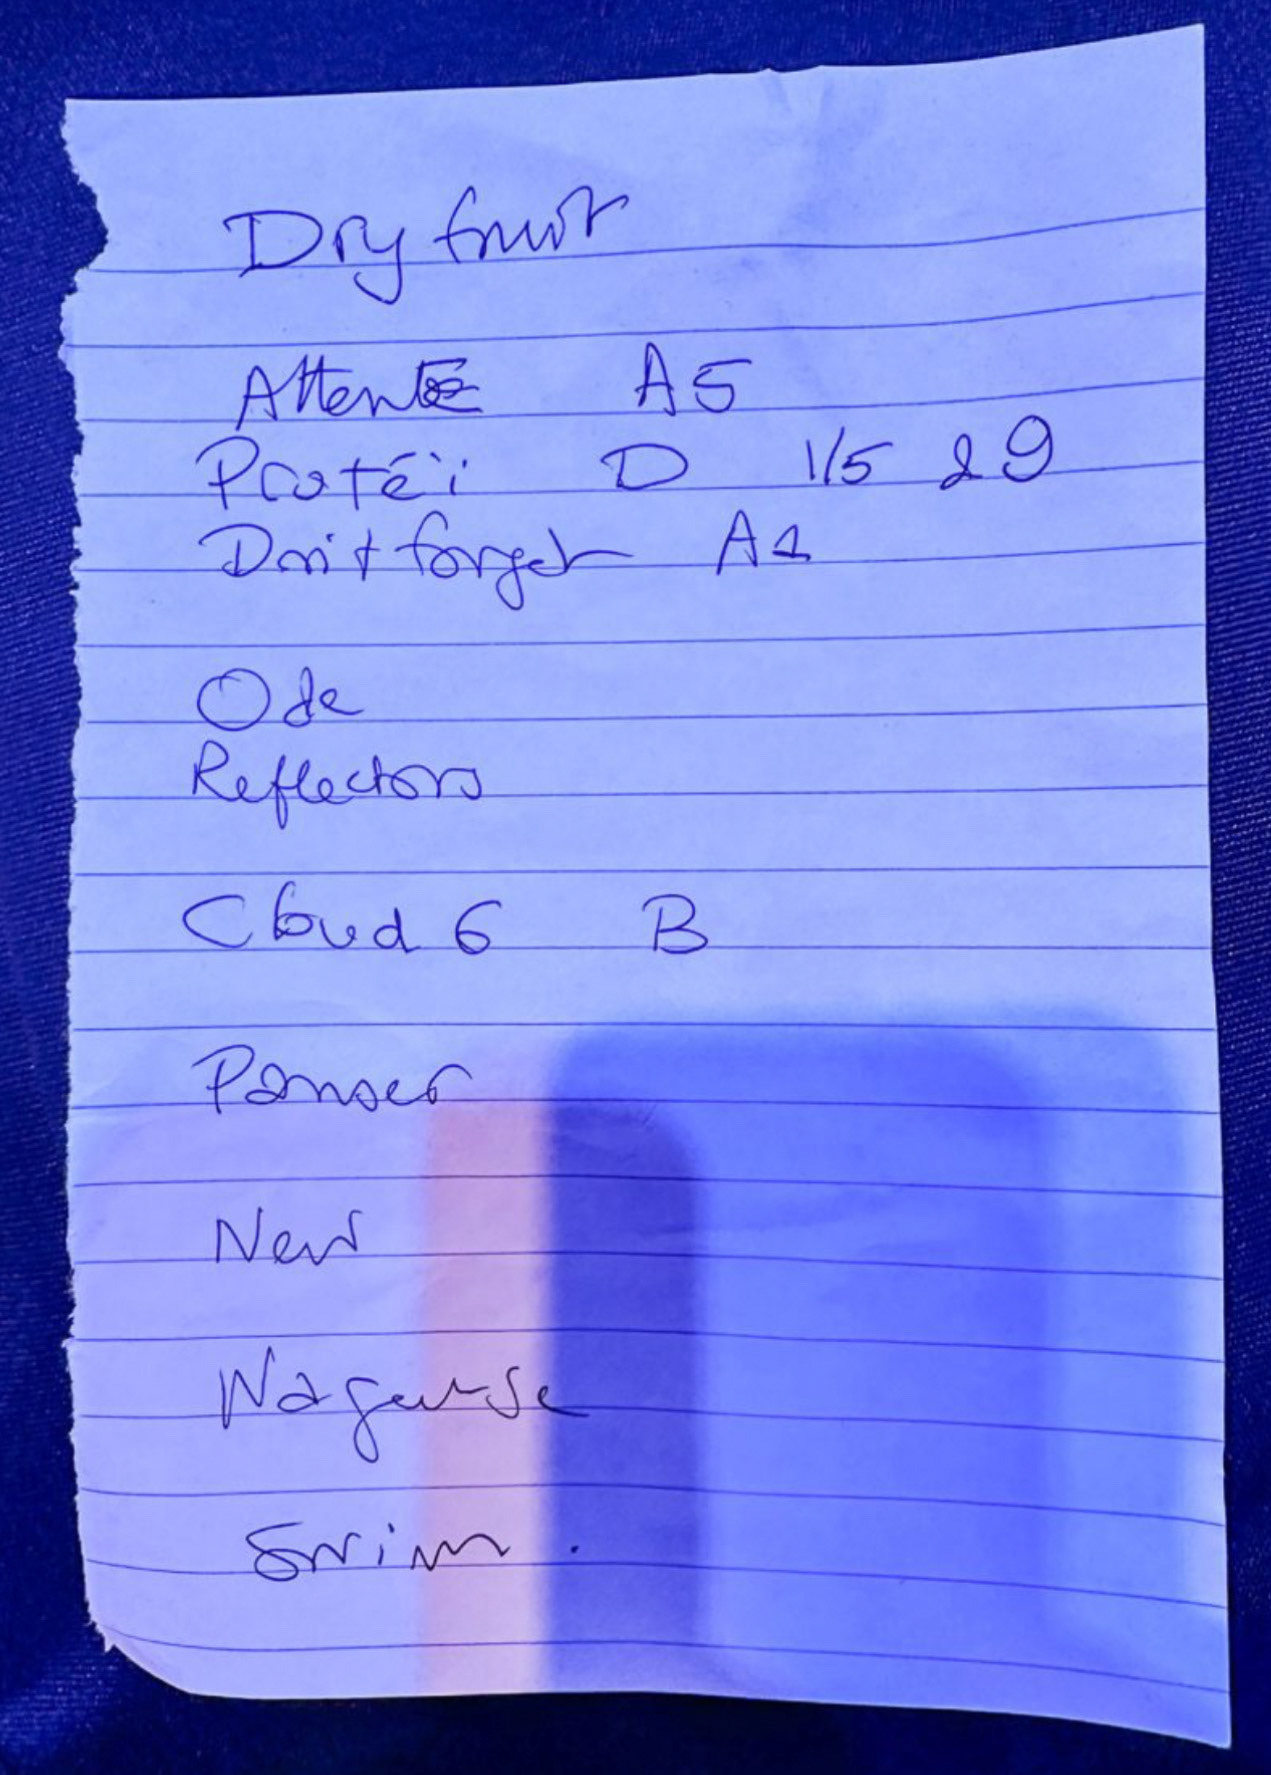 Dry fruit
Attente A5
Protéi D 1/5 29
Don't forget A1
Ode
Reflectors
Cloud 6 B
Panser
New
Nageuse
Swim.